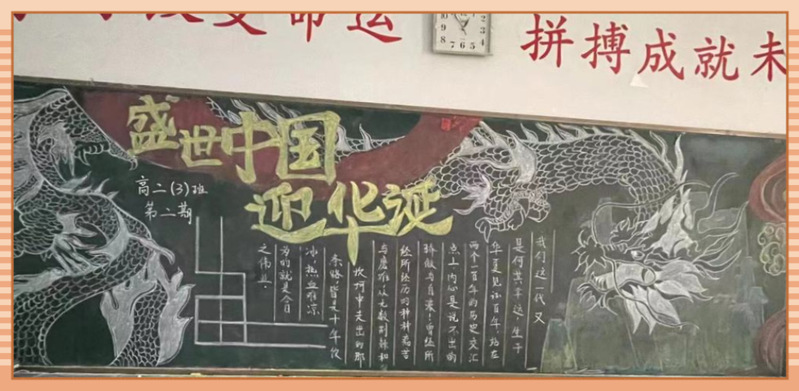 变命运
拼搏成就未
盛世中国
迎华诞
高二(3)班
第二期
我们这一代又
是何其幸运生于
华夏见证百年,站在
两个百年的历史交汇
点上,内心是说不出的
骄傲与自豪!曾经所
经所经历的种种艰苦
与磨难,从七
坎坷中走出的那
条路,皆是十年饮
冰,热血难凉
为的就是今日
之伟业